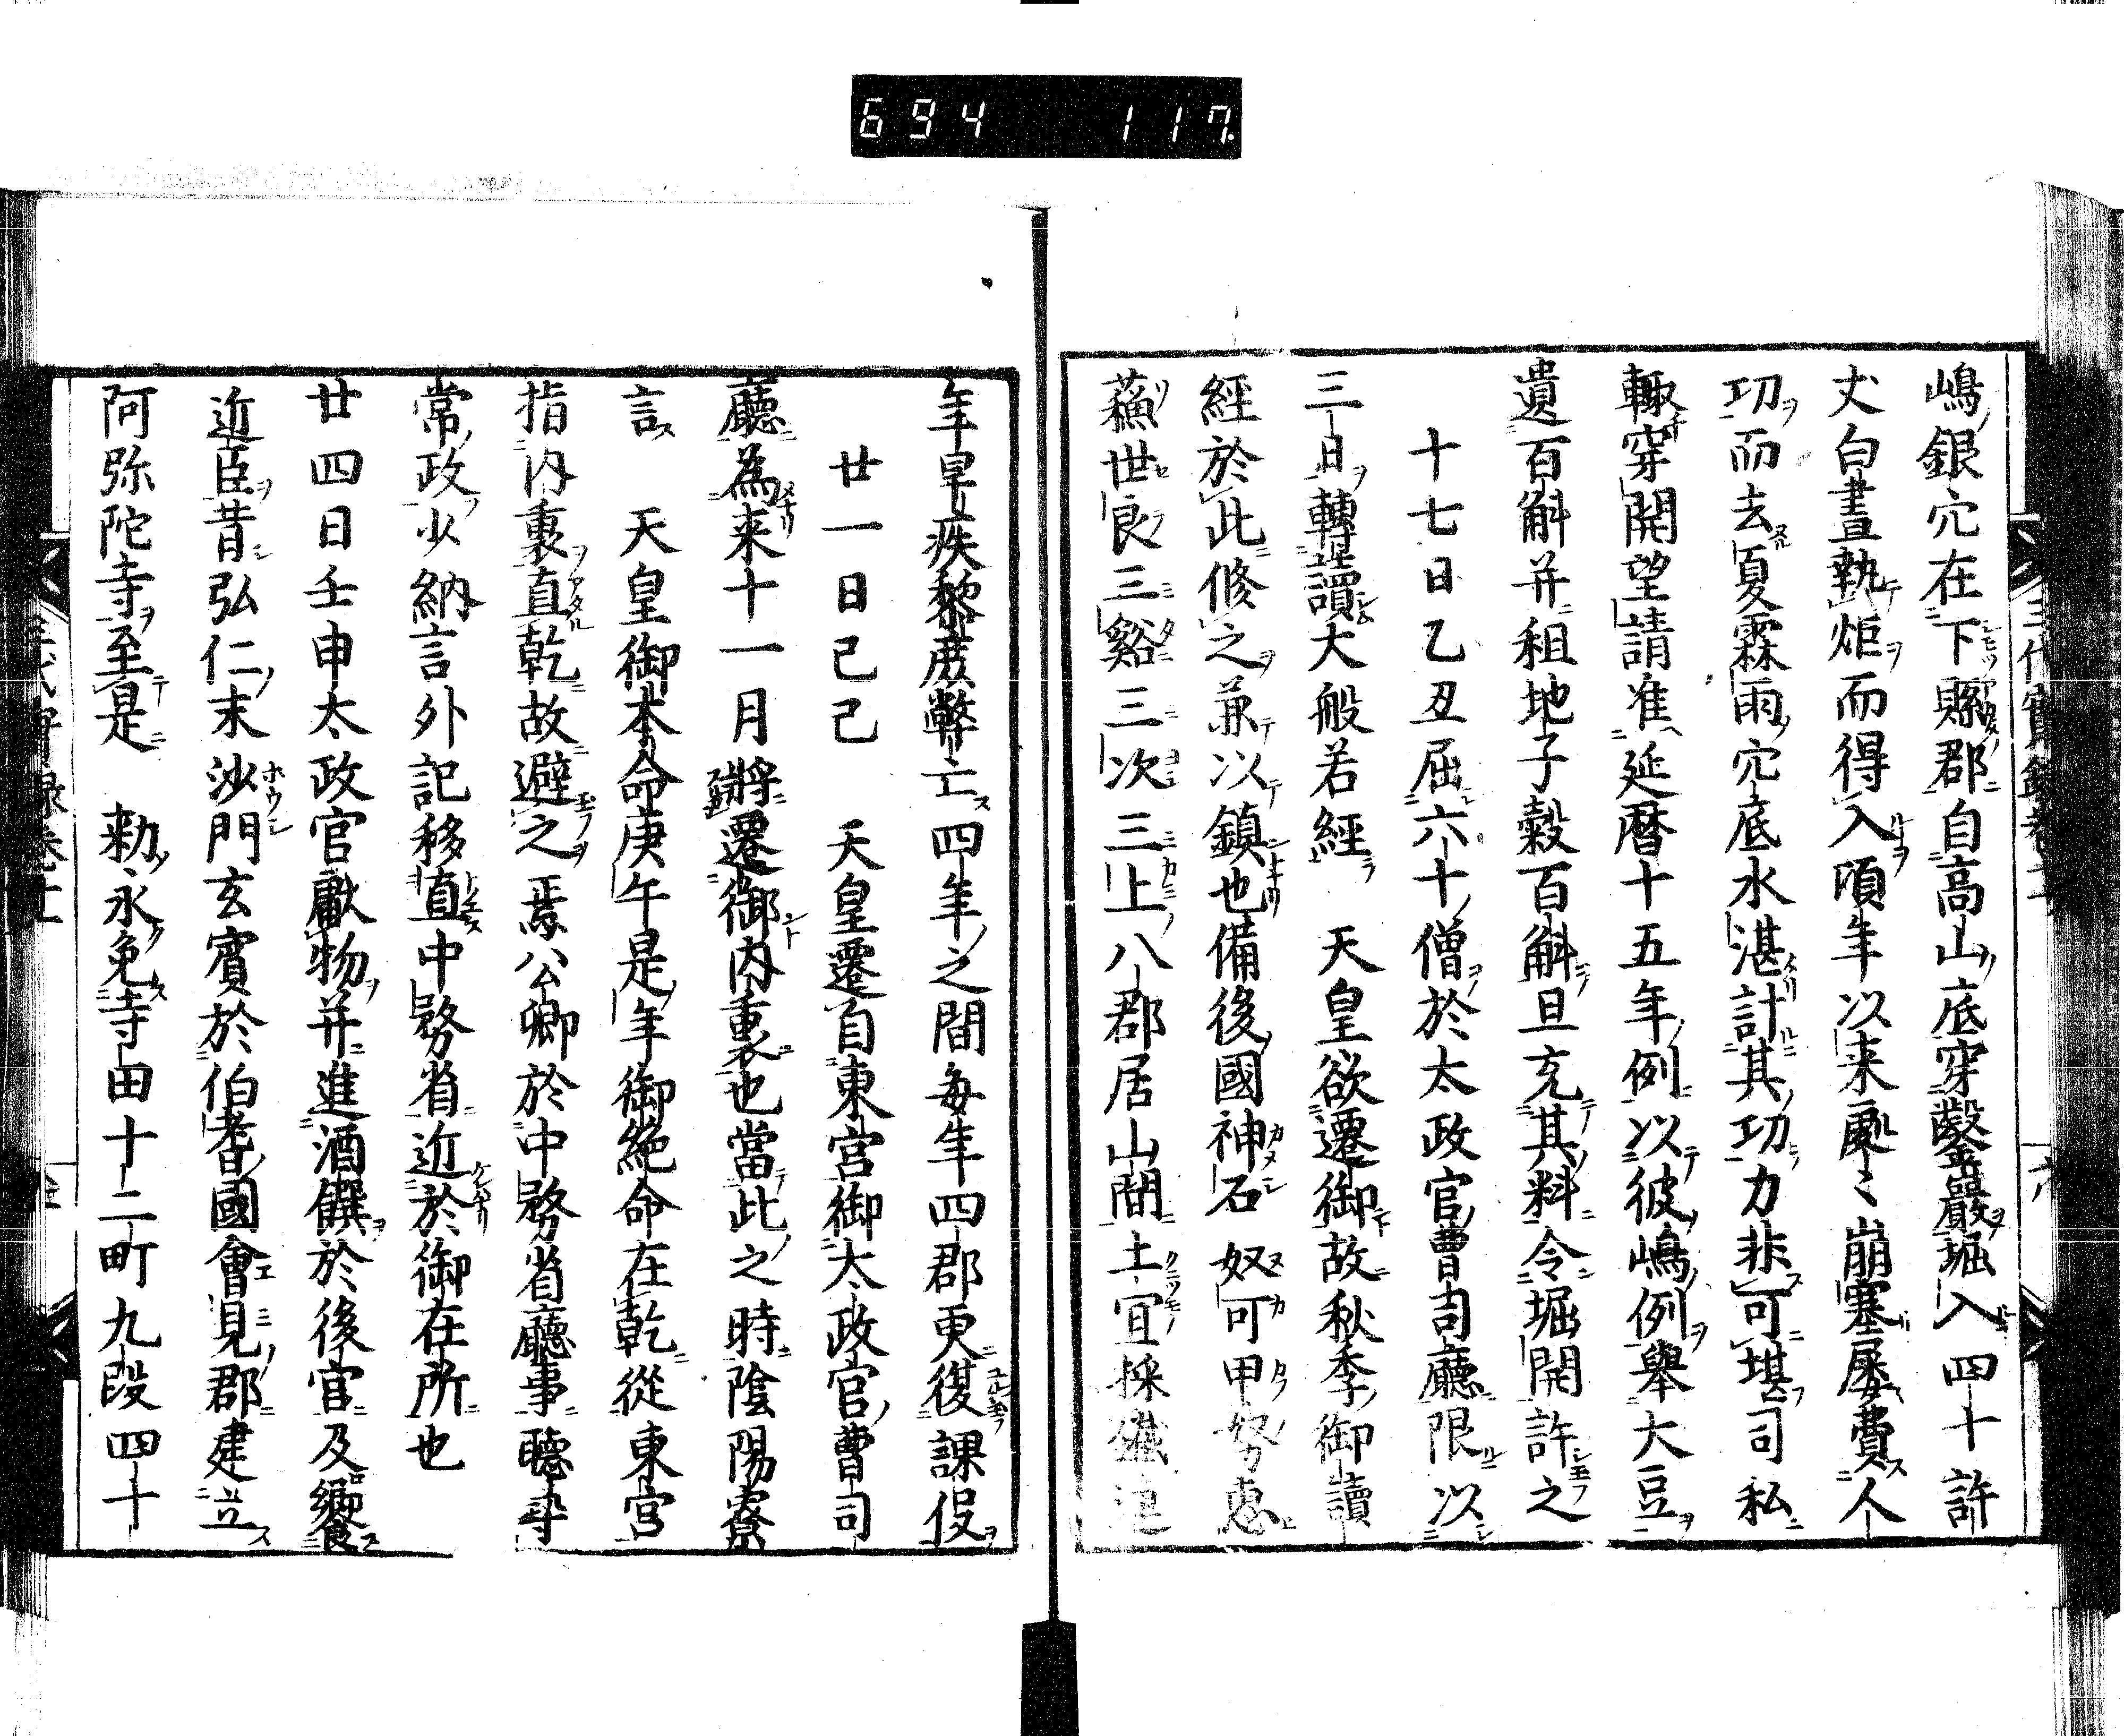 694 117.
嶋銀穴在下縣郡自高山底穿鑿巖堀入四十許
丈白晝執炬而得入頃年以来厥〻崩塞屡費人
功而去夏霖雨穴底水湛計其功力非可堪司私
輙穿開望請准延暦十五年例以彼嶋例舉大豆
遺百斛并租地子穀百斛旦充其料令堀開許之
十七日乙丑屈六十僧於太政官曹司廳限以
三日轉讀大般若經 天皇欲遷御故秋季御讀
經於此修之兼以鎮也備後國神石奴可甲努惠
蘓世良三谿三次三上八郡居山間土宜採
年旱疾黎庶弊亡四年之間毎年四郡更復課役
廿一日己己 天皇遷自東宮御太政官曹司
廳為来十一月將遷御内裏也當此之時陰陽寮
言 天皇御本命庚午是年御絶命在乾從東宮
指内裏直乾故避之焉公卿於中務省廳事聴尋
常政少納言外記移直中務省近於御在所也
廿四日壬申太政官獻物并進酒饌於後官及饗
近臣昔弘仁末沙門玄賓於伯耆國會見郡建立
阿弥陀寺至是 勅永免寺田十二町九段四十